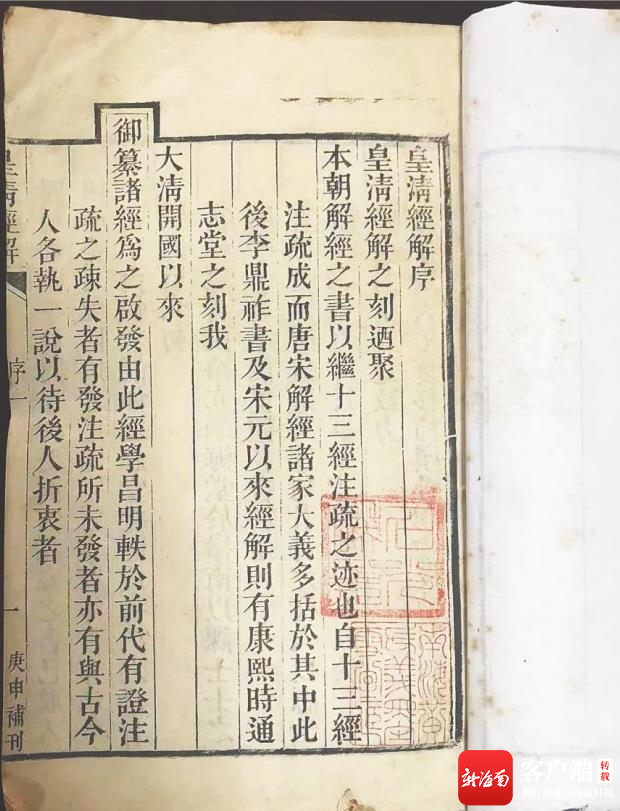 皇清經解序
皇清經解之刻迺聚
本朝解經之書以繼十三經注疏之迹也自十三經
注疏成而唐宋解經諸家大義多括於其中此
後李鼎祚書及宋元以來經解則有康熙時通
志堂之刻我
大清開國以來
御纂諸經爲之啟發由此經學昌明軼於前代有證注
疏之疎失者有發注疏所未發者亦有與古今
人各執一說以待後人折衷者
皇清經解
序
一
庚申補刊
新海南
客户端
转载